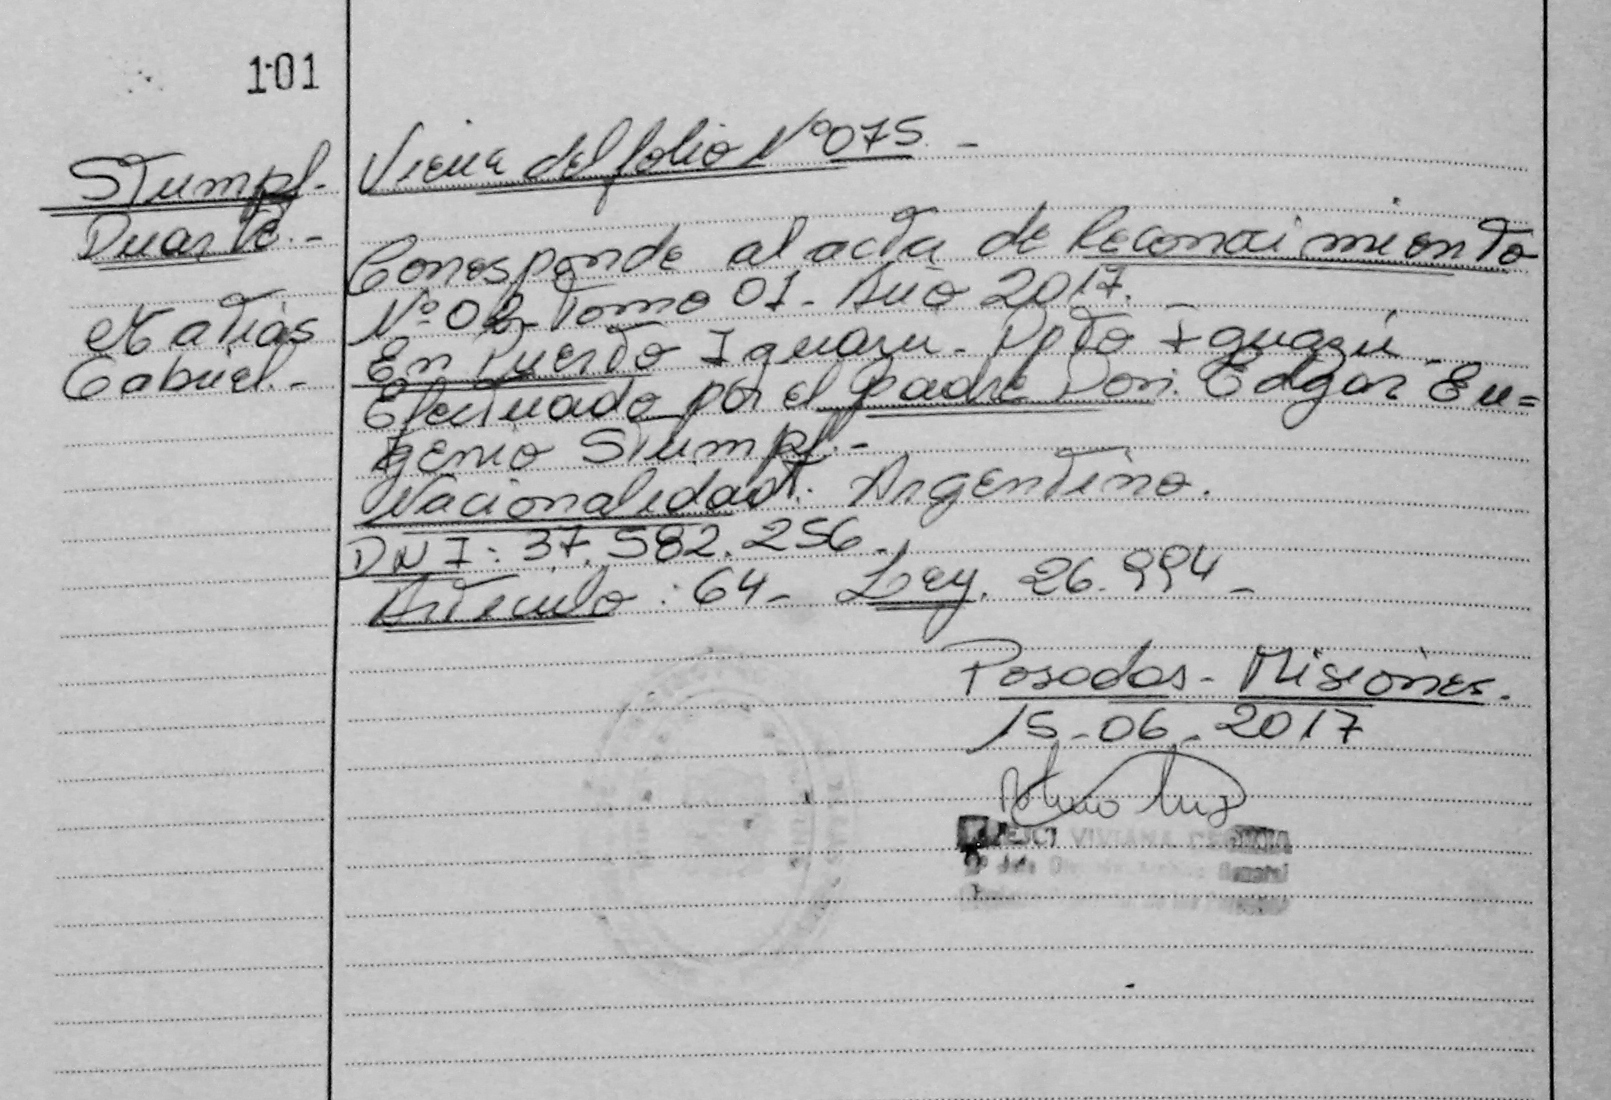 101
Stumpf.
Duarte.-
Matías
Gabriel.-
Viene del folio Nº 075.-
Corresponde al acta de Reconocimiento
Nº 02 Tomo 01- Año 2017.-
En Puerto Iguazú- Dpto Iguazú-
Efectuado por el padre Don: Edgar Eu=
genio Stumpf.-
Nacionalidad: Argentino.
DNI: 37.582.256.
Artículo: 64- Ley. 26.994-
Posadas- Misiones.
15-06-2017
VIVIANA